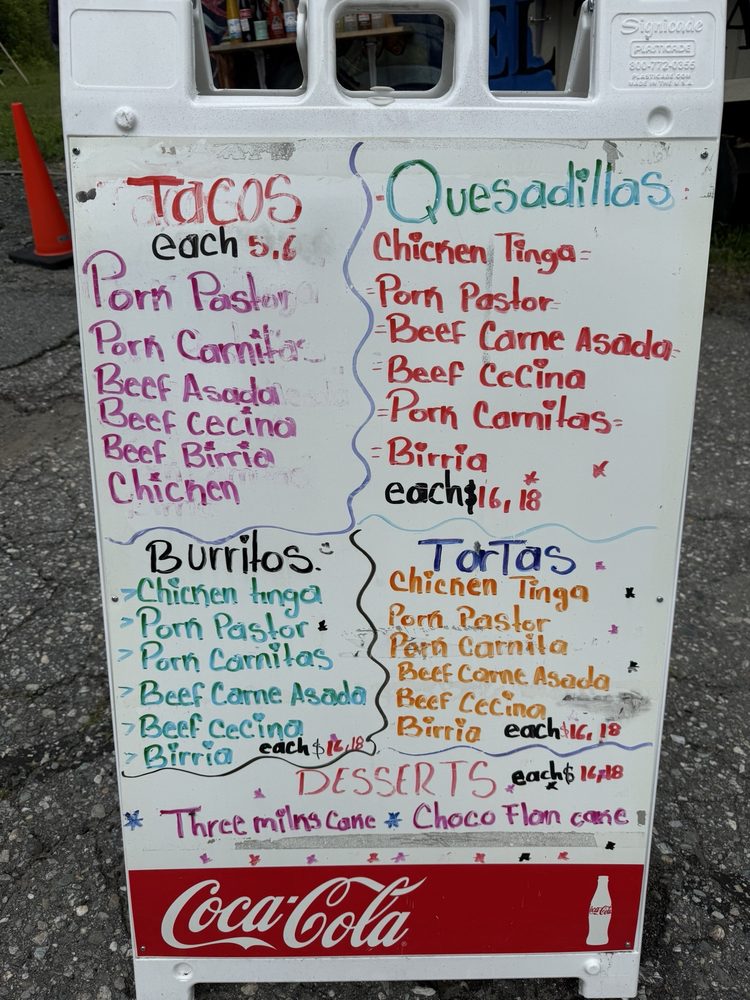 Signicade
PLASTICADE
800-772-0355
PLASTICADE.COM
MADE IN THE U.S.A
Tacos
each 5.6
Pork Pastor
Pork Carnitas
Beef Asada
Beef cecina
Beef Birria
Chicken
Quesadillas
Chicken Tinga
Pork Pastor
Beef Carne Asada
Beef CeCina
Pork Carnitas
Birria
each $16, 18
Burritos.
Chicken tinga
Pork Pastor
Pork Carnitas
Beef Carne Asada
Beef Cecina
Birria each $16,18
TorTas
Chicken Tinga
Pork Pastor
Pork Carnita
Beef Carne Asada
Beef Cecina
Birria each $16, 18
DESSERTS each $ 16,18
Three milks Cake * Choco Flan cake
Coca-Cola
Coca-Cola